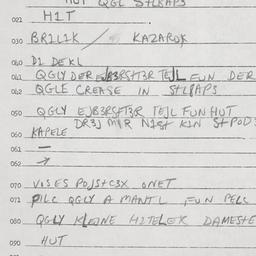 HUT QGL StLPAPS
021 H1T
030 BR1L1K / KAZAROK
060 D1 DEKL
061 QGLY DER TEJL FUN DER
062 QGLE CREASE IN StLPAPS
050 QGLY EJB3RSHT3R TEJL FUN HUT
DR3J M1R N1St K1N StPODS
060 KAPELE
061 —
052 →
070 V1SES POJStC3X ONET
071 P1LC QGLY A MANTL, FUN PELC
080 QGLY KLEJNE H1TELEK DAMESHE
090 HUT